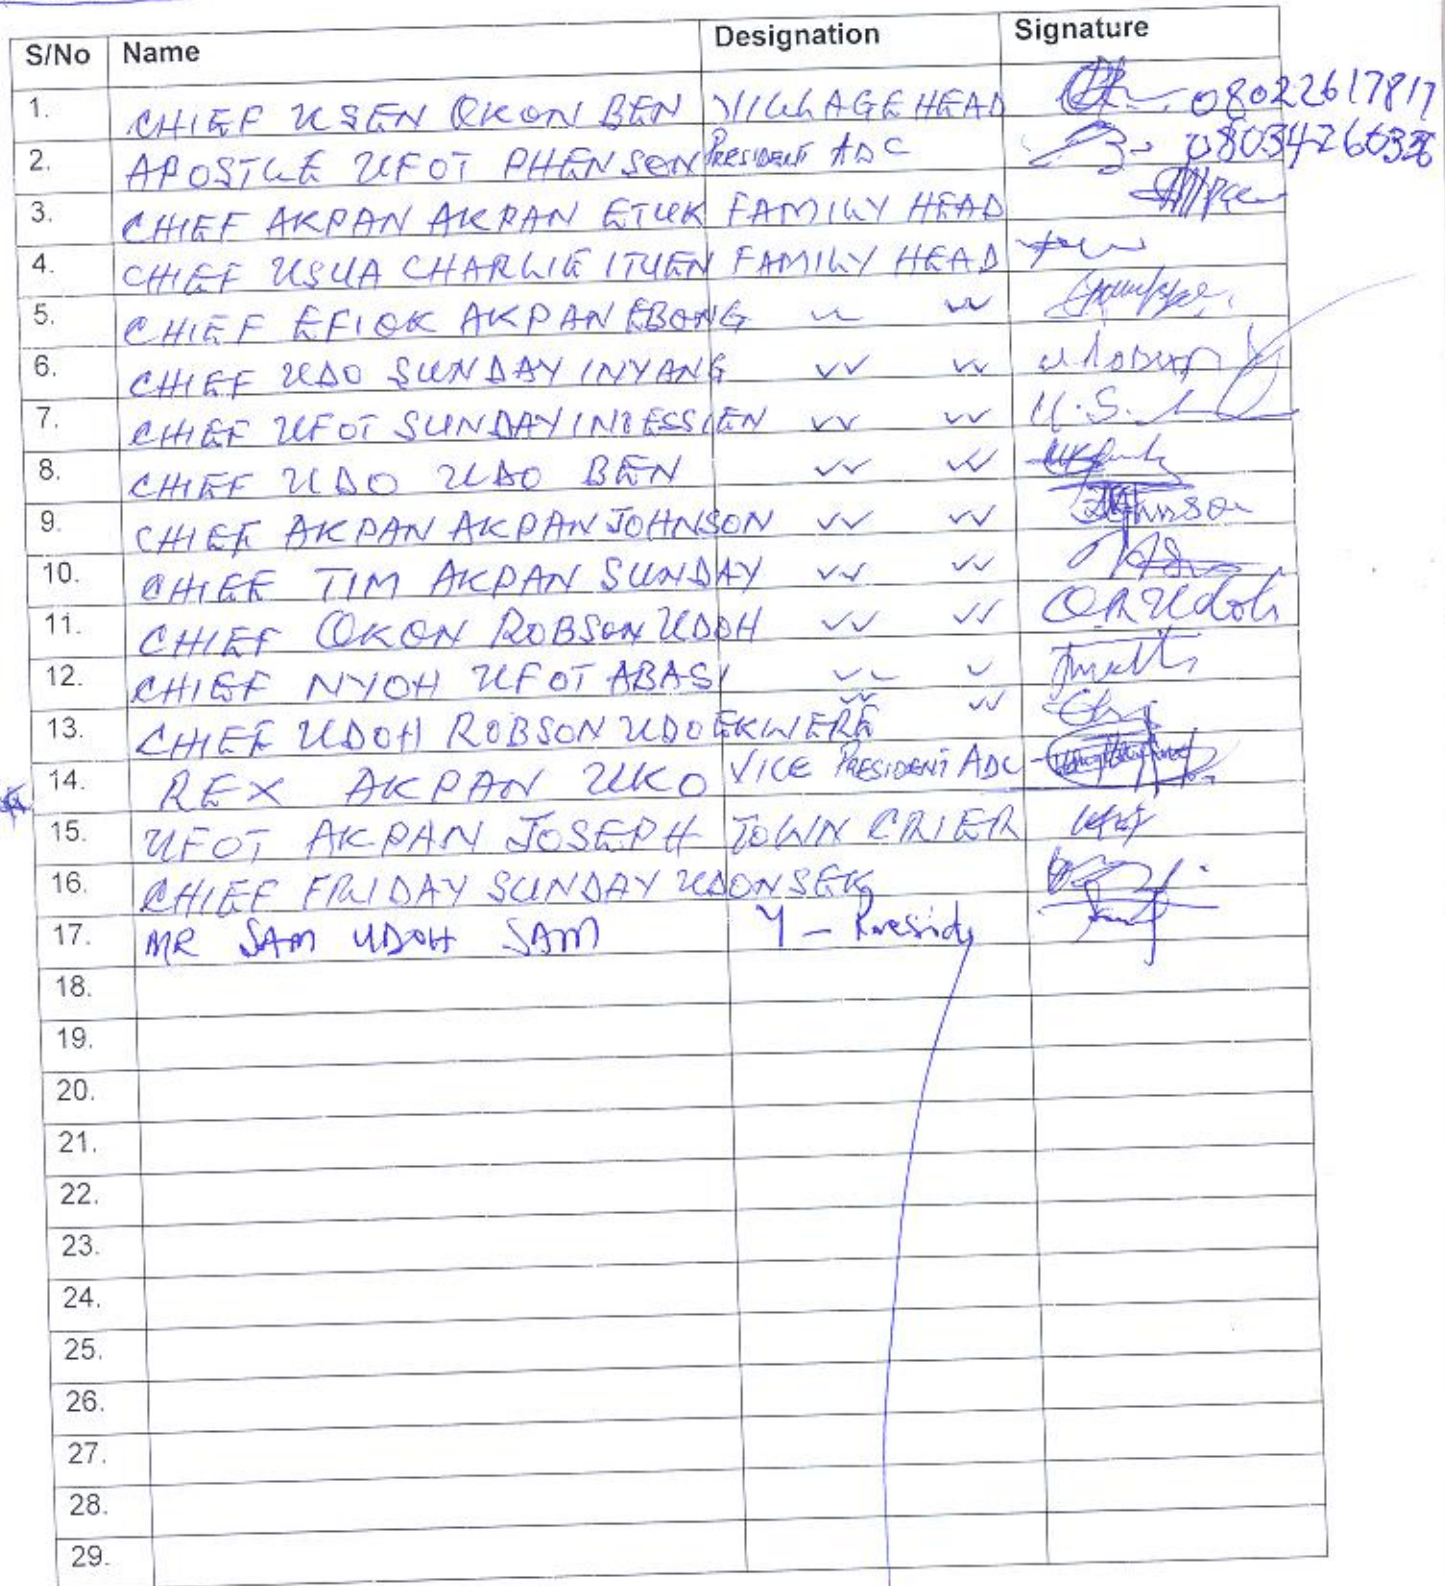 S/No Name Designation Signature
1. CHIEF USEN OKON BEN VILLAGE HEAD 08022617817
2. APOSTLE UFOT PHENSON PRESIDENT ADC
3. CHIEF AKPAN AKPAN ETUK FAMILY HEAD
4. CHIEF USUA CHARLIE ITUEN FAMILY HEAD
5. CHIEF EFIOK AKPAN EBONG ✓✓ ✓✓
6. CHIEF UDO SUNDAY INYANG ✓✓ ✓✓
7. CHIEF UFOT SUNDAY ✓✓ ✓✓ U.S.
8. CHIEF UDO UDO BEN ✓✓ ✓✓
9. CHIEF AKPAN AKPAN JOHNSON ✓✓ ✓✓ Johnson
10. CHIEF TIM AKPAN SUNDAY ✓✓ ✓✓
11. CHIEF OKON ROBSON UDOH ✓✓ ✓✓ OR Udoh
12. CHIEF NYOH UFOT ABASI ✓✓ ✓
13. CHIEF UDOH ROBSON UDOEKWERE ✓✓ ✓✓
14. REX AKPAN UKO VICE PRESIDENT ADC
15. UFOT AKPAN JOSEPH TOWN CRIER
16. CHIEF FRIDAY SUNDAY UDONSEK
17. MR SAM UDOH SAM Y -
18.
19.
20.
21.
22.
23.
24.
25.
26.
27.
28.
29.